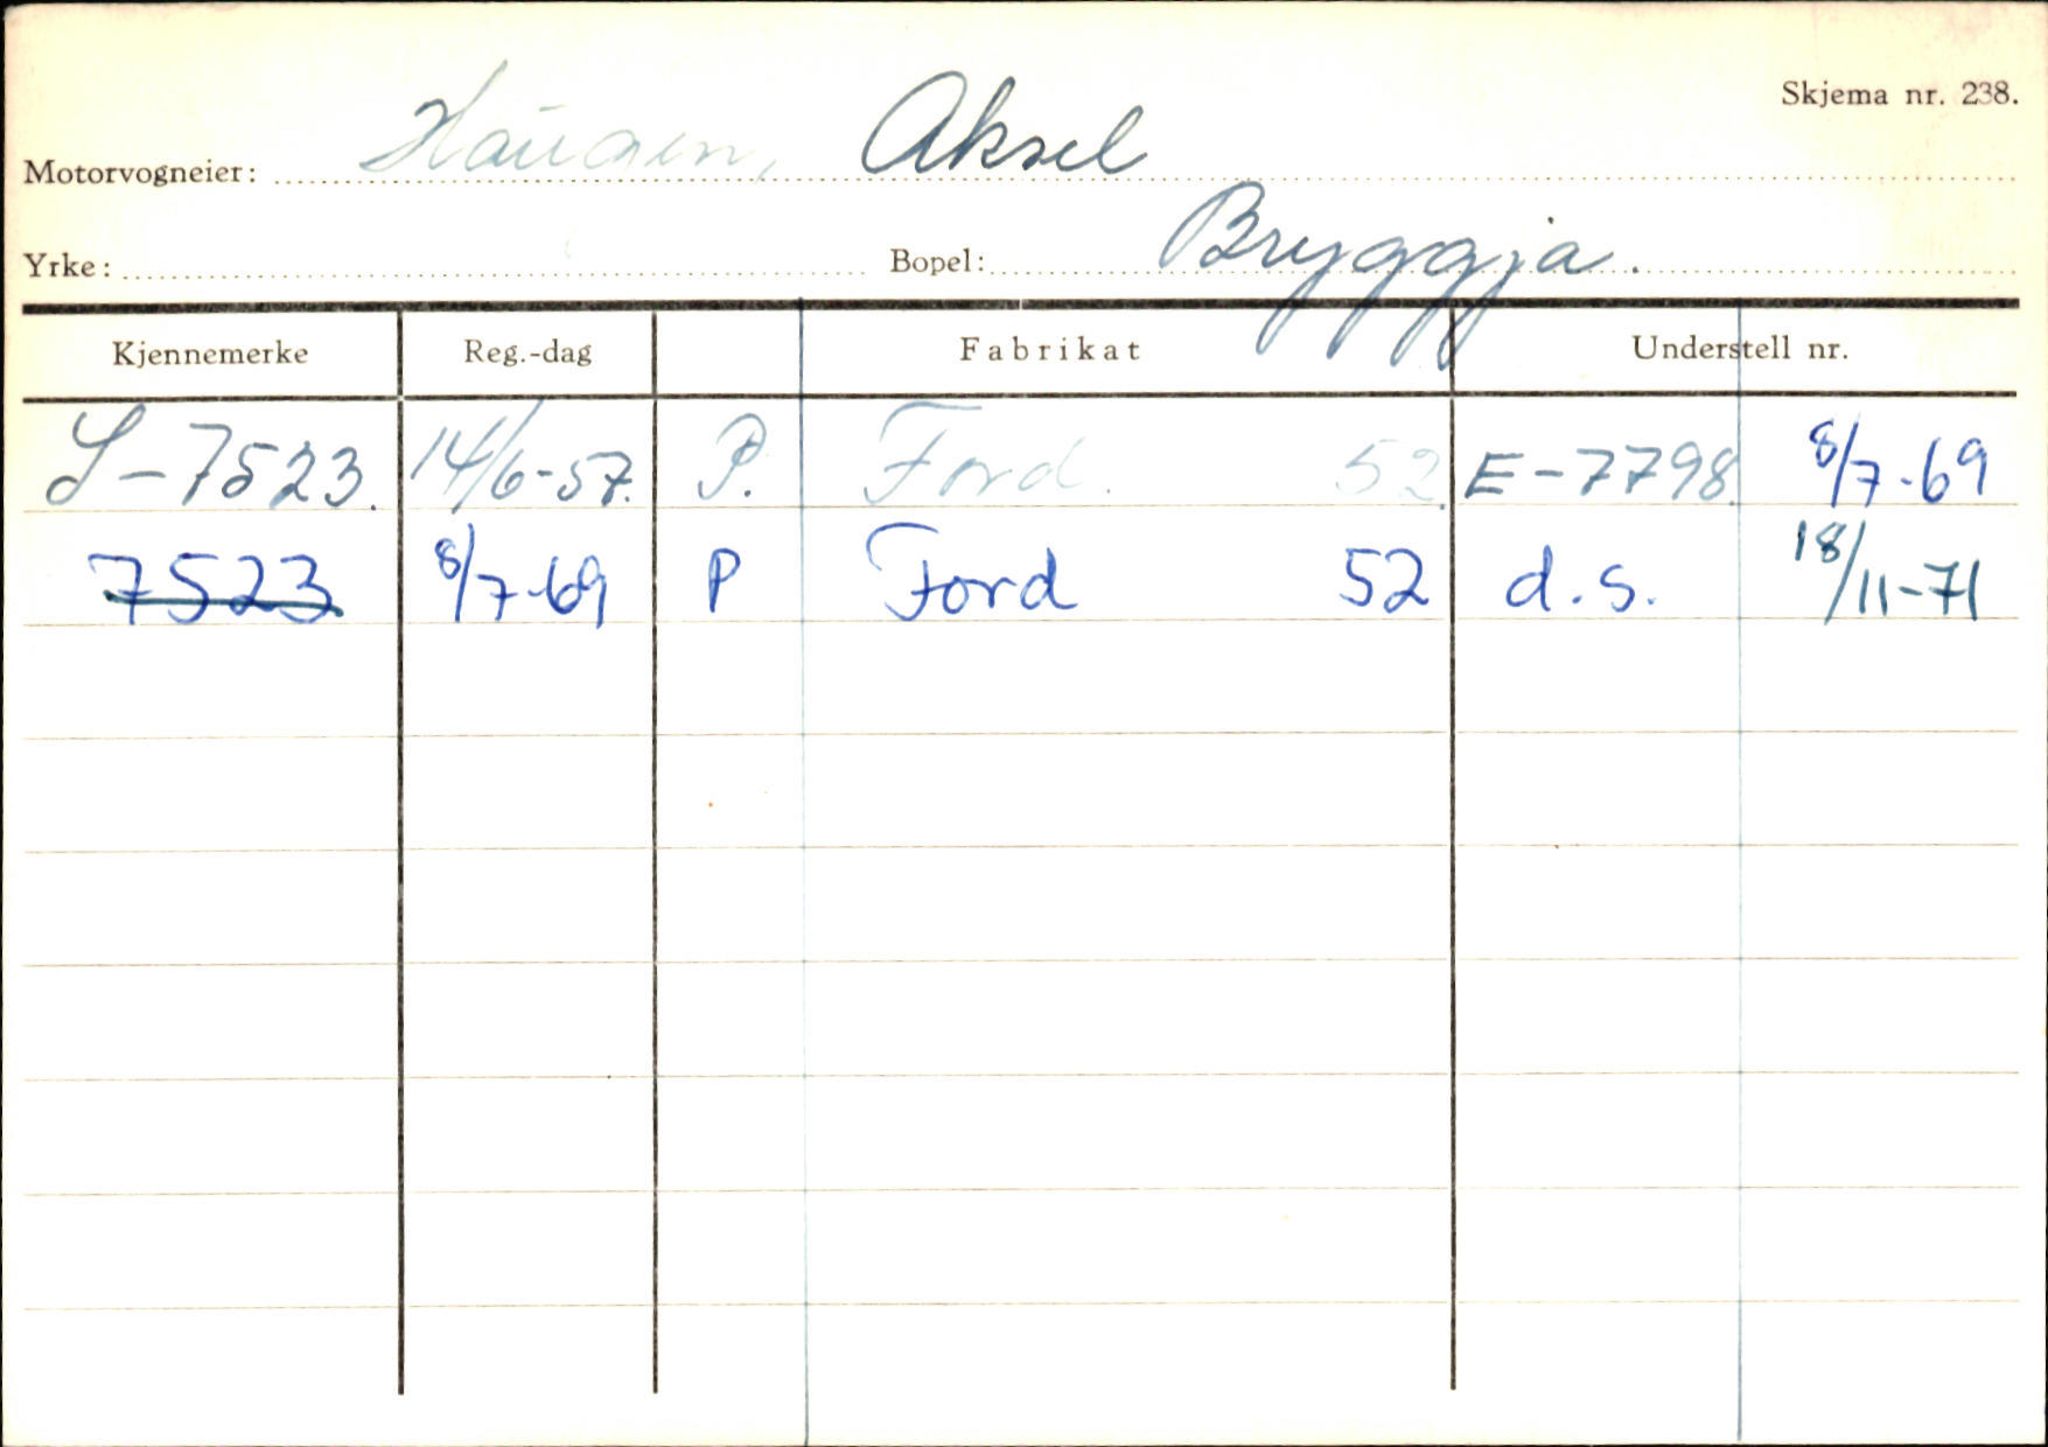 Skjema nr. 238.
Motorvogneier: Haugen, Aksel
Yrke: Bopel: Bryggja.
Kjennemerke Reg.-dag Fabrikat Understell nr.
S-7523. 14/6-57. P. Ford. 52. E-7798. 8/7-69
7523 8/7-69 P Ford 52 d.s. 18/11-71